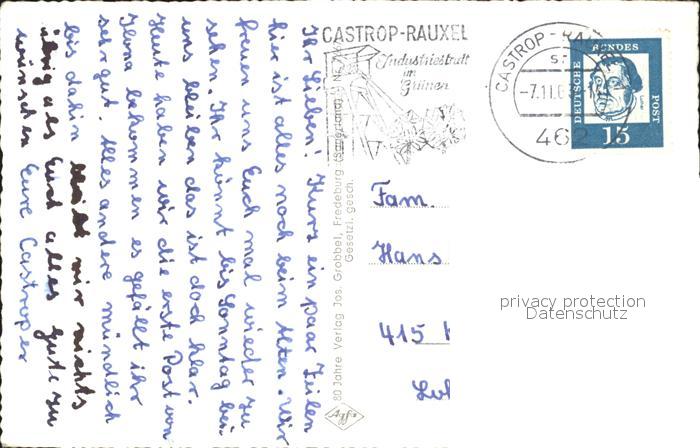 CASTROP-RAUXEL
Industriestadt
im
Grünen
CASTROP-RAUXEL
-7.11.6
462
DEUTSCHE
BUNDES
POST
15
Ihr Lieben! Kurz ein paar Zeilen
hier ist alles noch beim Alten. Wir
freuen uns Euch mal wieder zu
sehen. Ihr könnt bis Sonntag bei
uns bleiben das ist doch klar.
Heute haben wir die erste Post von
Ilona bekommen es gefällt ihr
sehr gut. Alles andere mündlich
bis dahin bleibt mir nichts
übrig als Euch alles Gute zu
wünschen Eure Castroper
80 Jahre Verlag Jos. Grobbel, Fredeburg (Sauerland)
Gesetzl. gesch.
Agfa
Fam.
Hans
415
privacy protection
Datenschutz